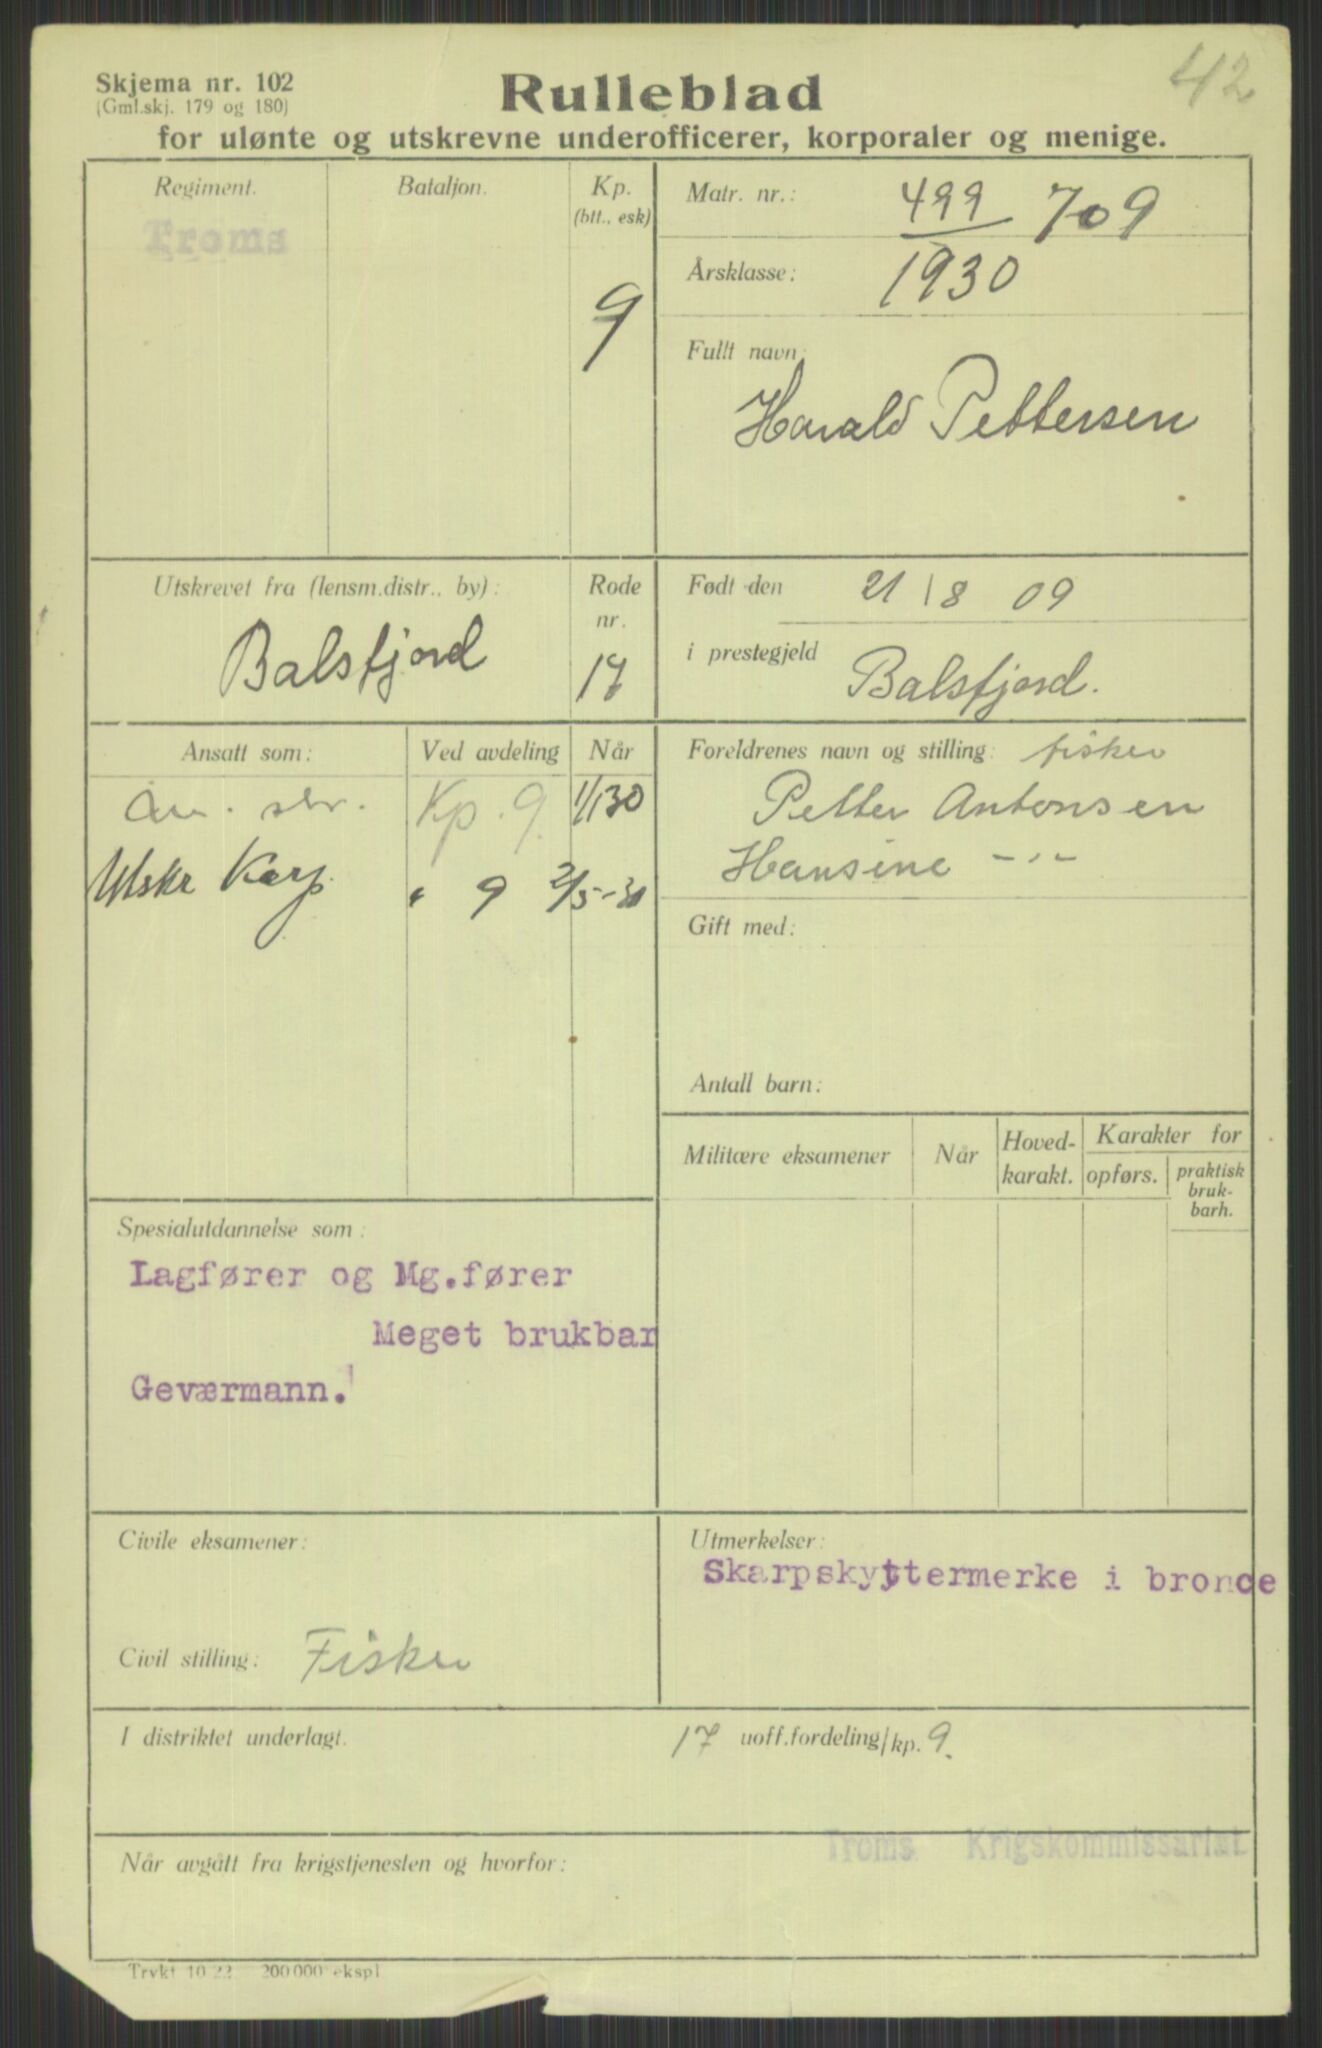 42
Skjema nr. 102
(Gml.skj. 179 og 180)
Rulleblad
for ulønte og utskrevne underofficerer, korporaler og menige.
Regiment.
Troms
Bataljon.
Kp.
(btt., esk)
9
Matr. nr.: 499 709
Årsklasse: 1930
Fullt navn:
Harald Pettersen
Utskrevet fra (lensm.distr., by):
Balsfjord
Rode
nr.
17
Født den 21/8 09
i prestegjeld Balsfjord.
Ansatt som: Ved avdeling Når
Kp. 9. 1/1 30
Utskr Korp. " 9 2/5-30
Foreldrenes navn og stilling: fisker
Petter Antonsen
Hansine -"-
Gift med:
Antall barn:
Militære eksamener
Når
Hoved-
karakt.
Karakter for
opførs.
praktisk
bruk-
barh.
Spesialutdannelse som:
Lagfører og Mg.fører
Meget brukbar
Geværmann.
Civile eksamener:
Civil stilling: Fisker
Utmerkelser:
Skarpskyttermerke i bronce
I distriktet underlagt.
17 uoff.fordeling/kp. 9.
Troms Krigskommissariat
Når avgått fra krigstjenesten og hvorfor:
Trykt 10 22. 200 000 ekspl